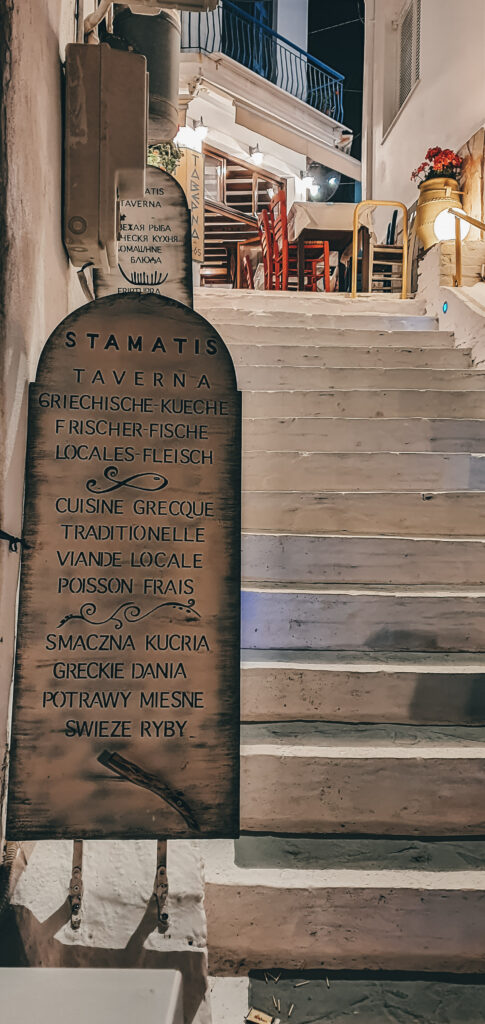 STAMATIS
TAVERNA
GRIECHISCHE-KUECHE
FRISCHER-FISCHE
LOCALES-FLEISCH
CUISINE GRECQUE
TRADITIONELLE
VIANDE LOCALE
POISSON FRAIS
SMACZNA KUCRIA
GRECKIE DANIA
POTRAWY MIESNE
SWIEZE RYBY
TAVERNA
РЫБА
КУХНЯ
БЛЮДА